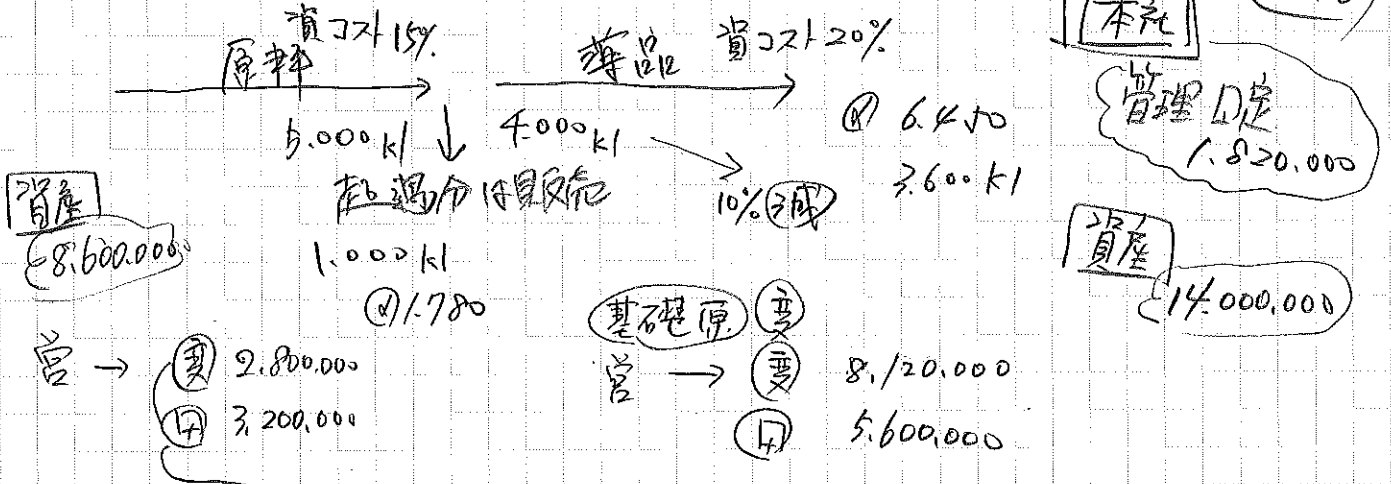 資コスト15%
原料
5.000kl
超過分は販売
1.000kl
@1.780
資産
8.600.000
営→変 2.800.000
固 3.200.000
薬品 資コスト20%
4.000kl
10%減
@ 6.450
3.600kl
基礎原 変
営→変 8.120.000
固 5.600.000
本社
管理 固定
1.820.000
資産
14.000.000